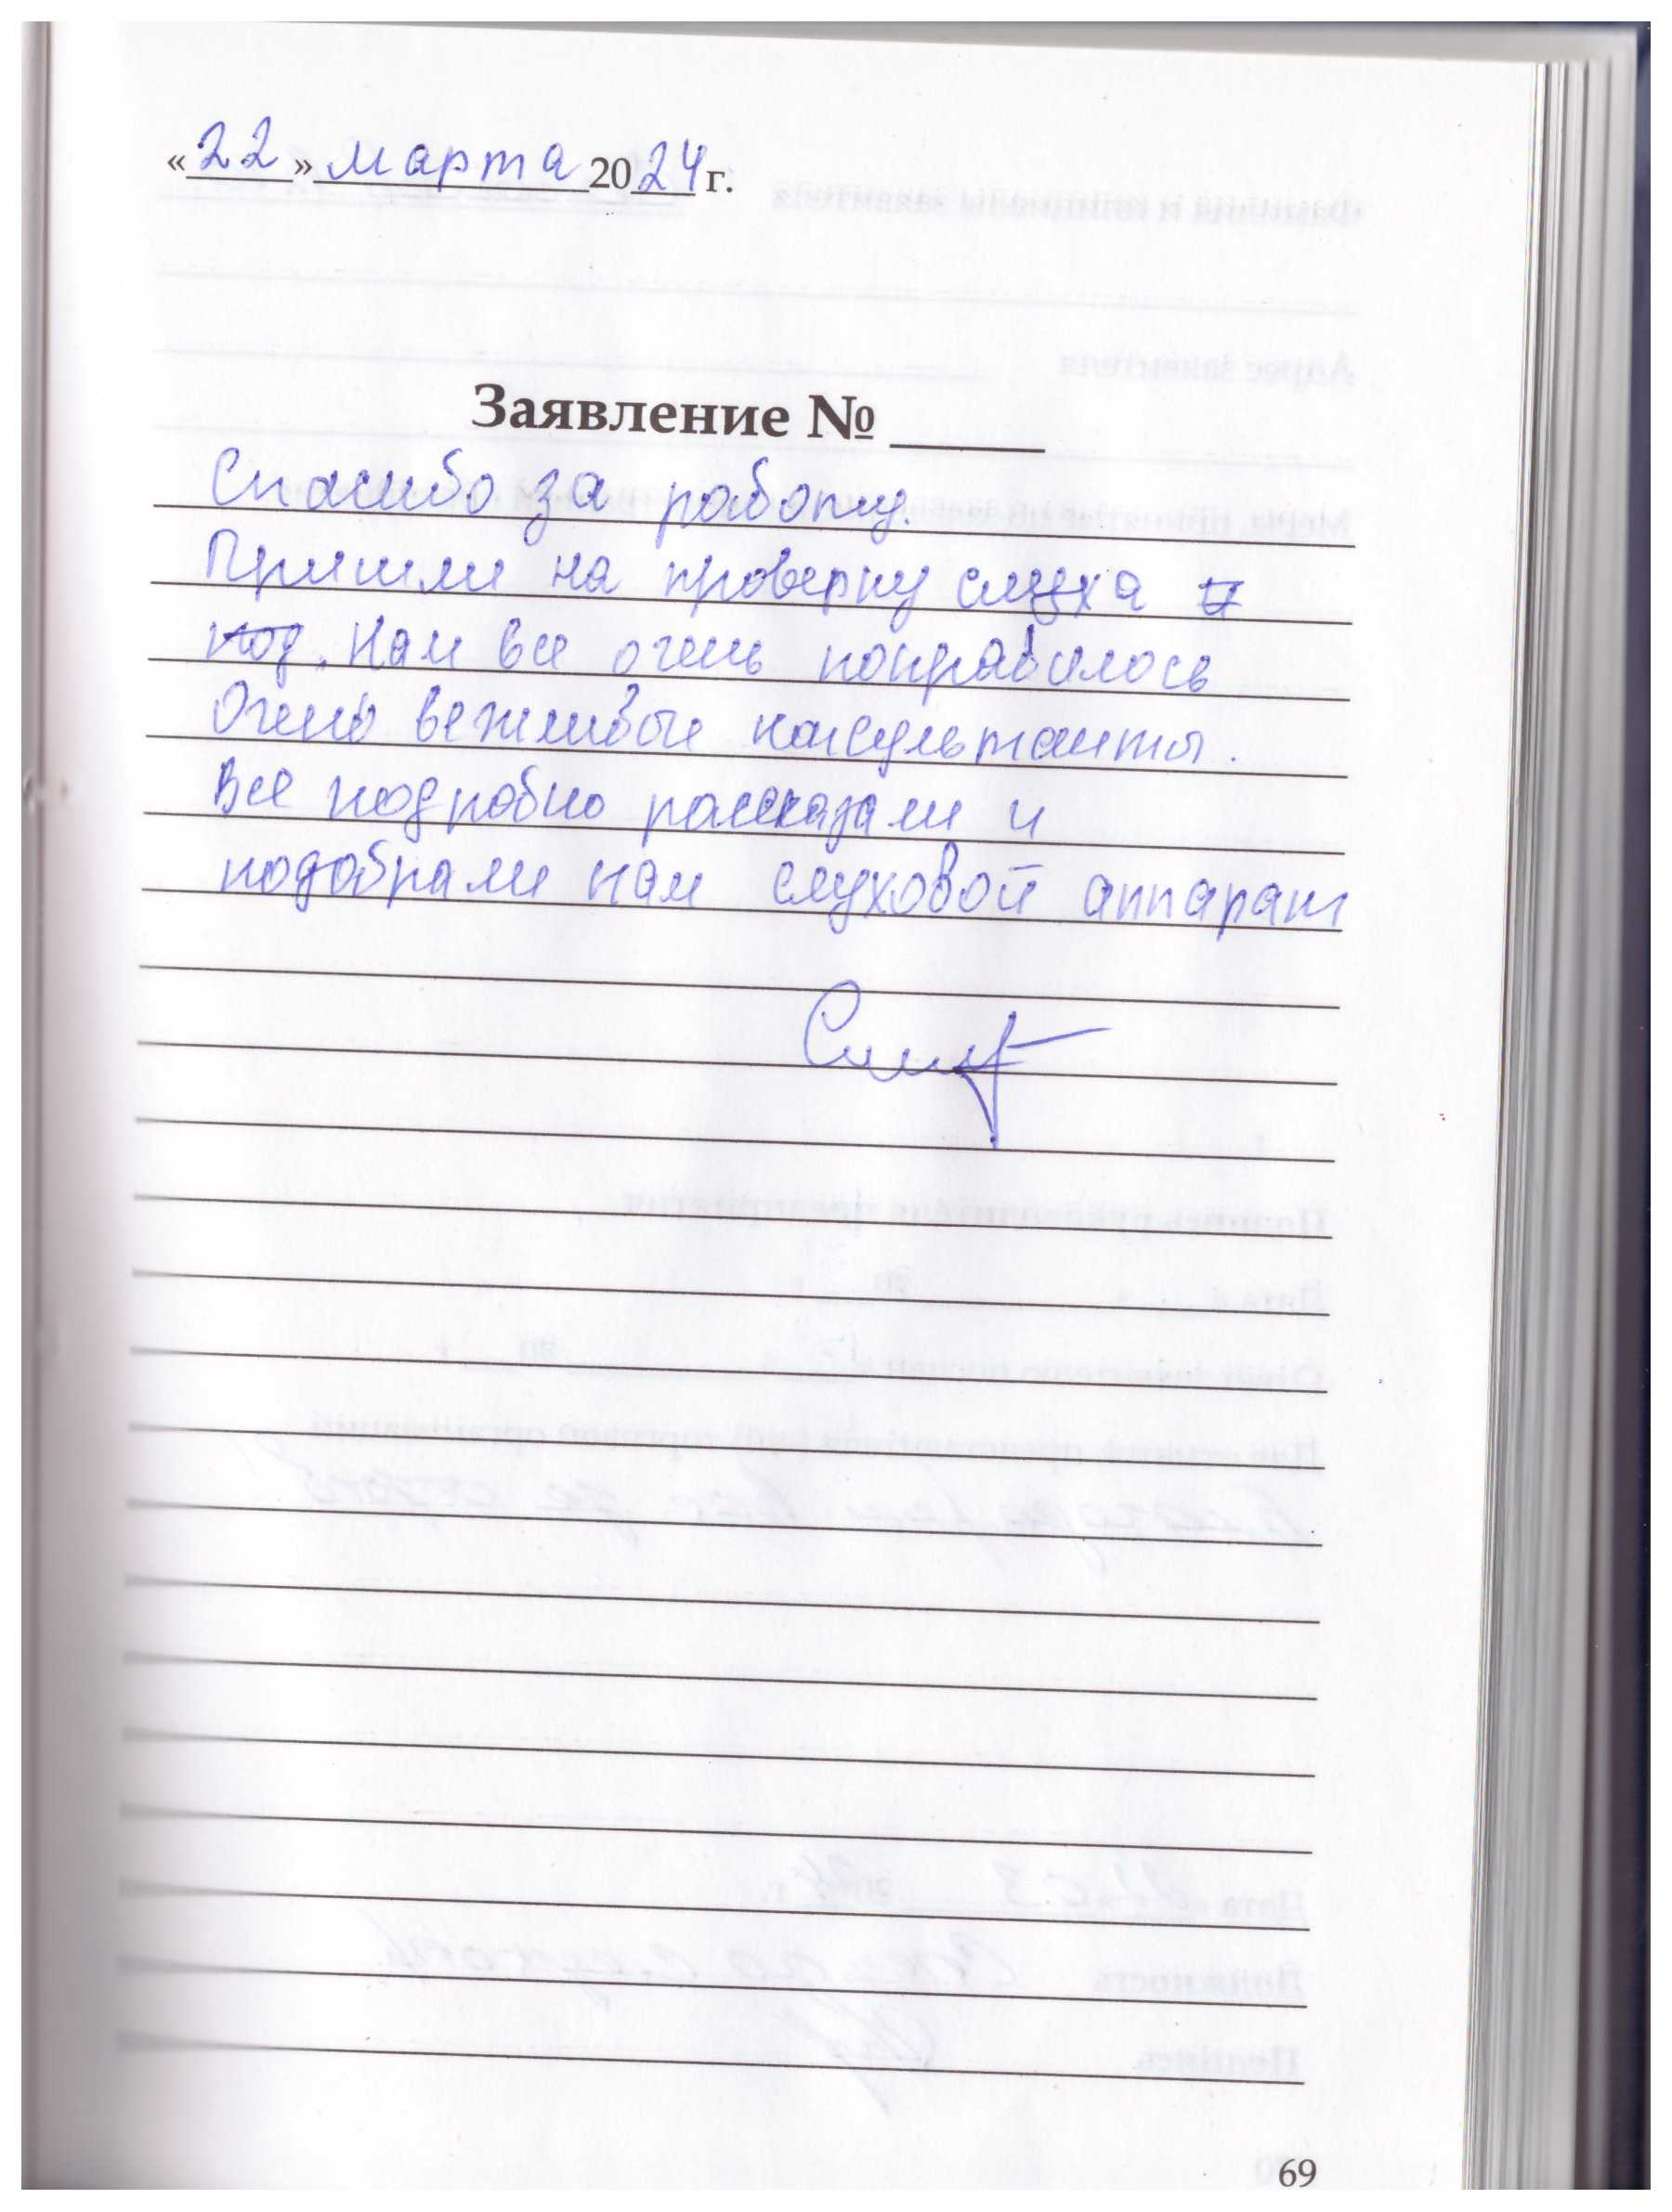 «22» марта 2024 г.
Заявление №
Спасибо за работу.
Пришли на проверку слуха и
под. Нам все очень понравилось
Очень вежливые консультанты.
Все подробно рассказали и
подобрали нам слуховой аппарат
69